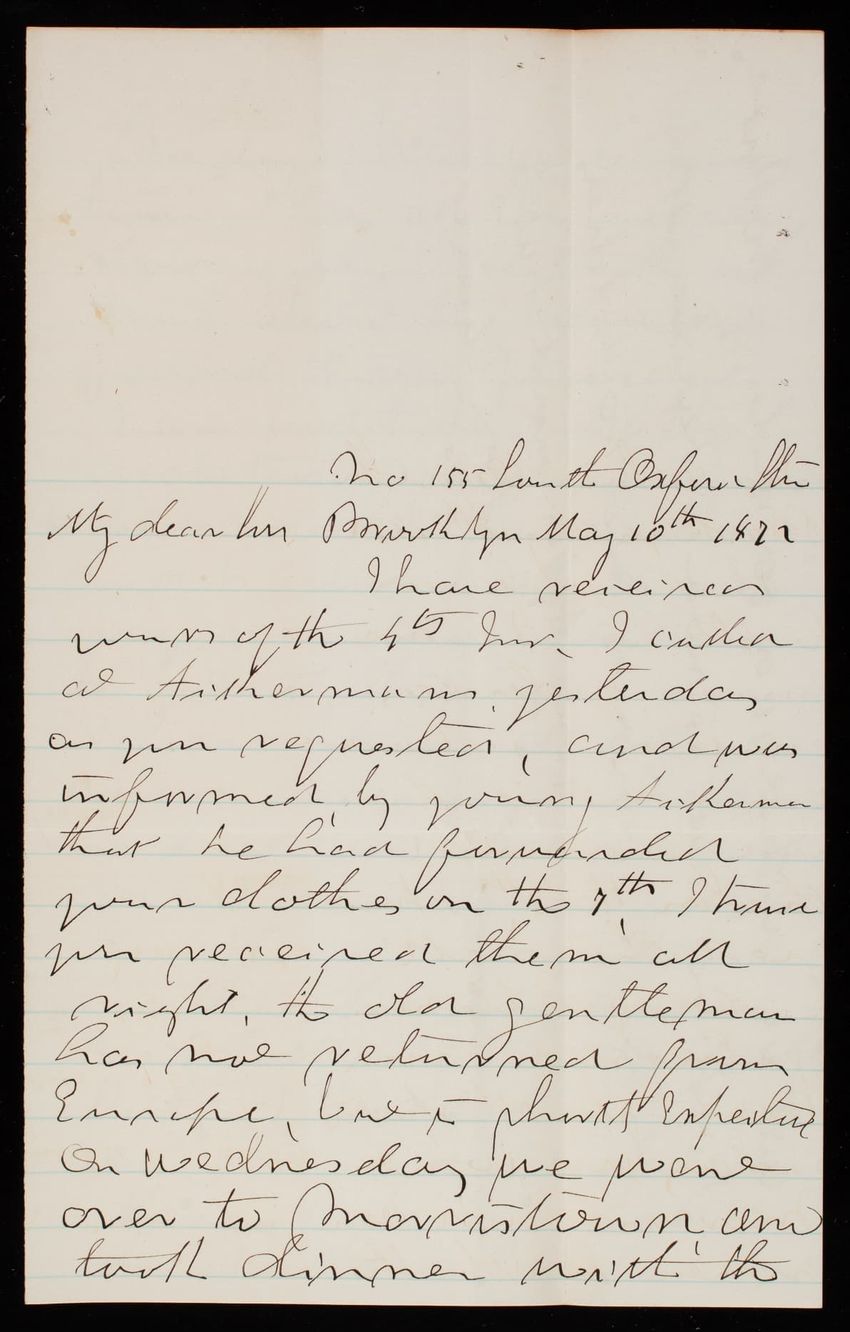 No 155 South Oxford Str
My dear Son Brooklyn May 10th 1872
I have received
yours of the 4th Inst. I called
at Ackermans yesterday
as you requested, and was
informed by young Ackerman
that he had forwarded
your clothes on the 7th, I trust
you received them all
right, the old gentleman
has not returned from
Europe, but is shortly Expected
On Wednesday we went
over to Morristown and
took dinner with the